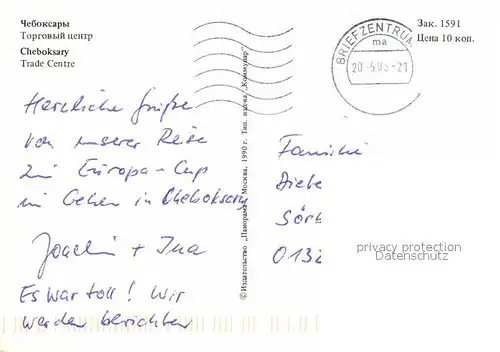 Чебоксары
Торговый центр
Cheboksary
Trade Centre
Зак. 1591
Цена 10 коп.
BRIEFZENTRUM
ma
20.-5.03-21
Herzliche Grüße
von unserer Reise
zum Europa-Cup
im Gehen in Cheboksary
Joachim + Ina
Es war toll! Wir
werden berichten
© Издательство „Панорама“. Москва. 1990 г. Тип. изд-ва „Коммунар“
Familie
Diebe
Sörb
013
privacy protection
Datenschutz